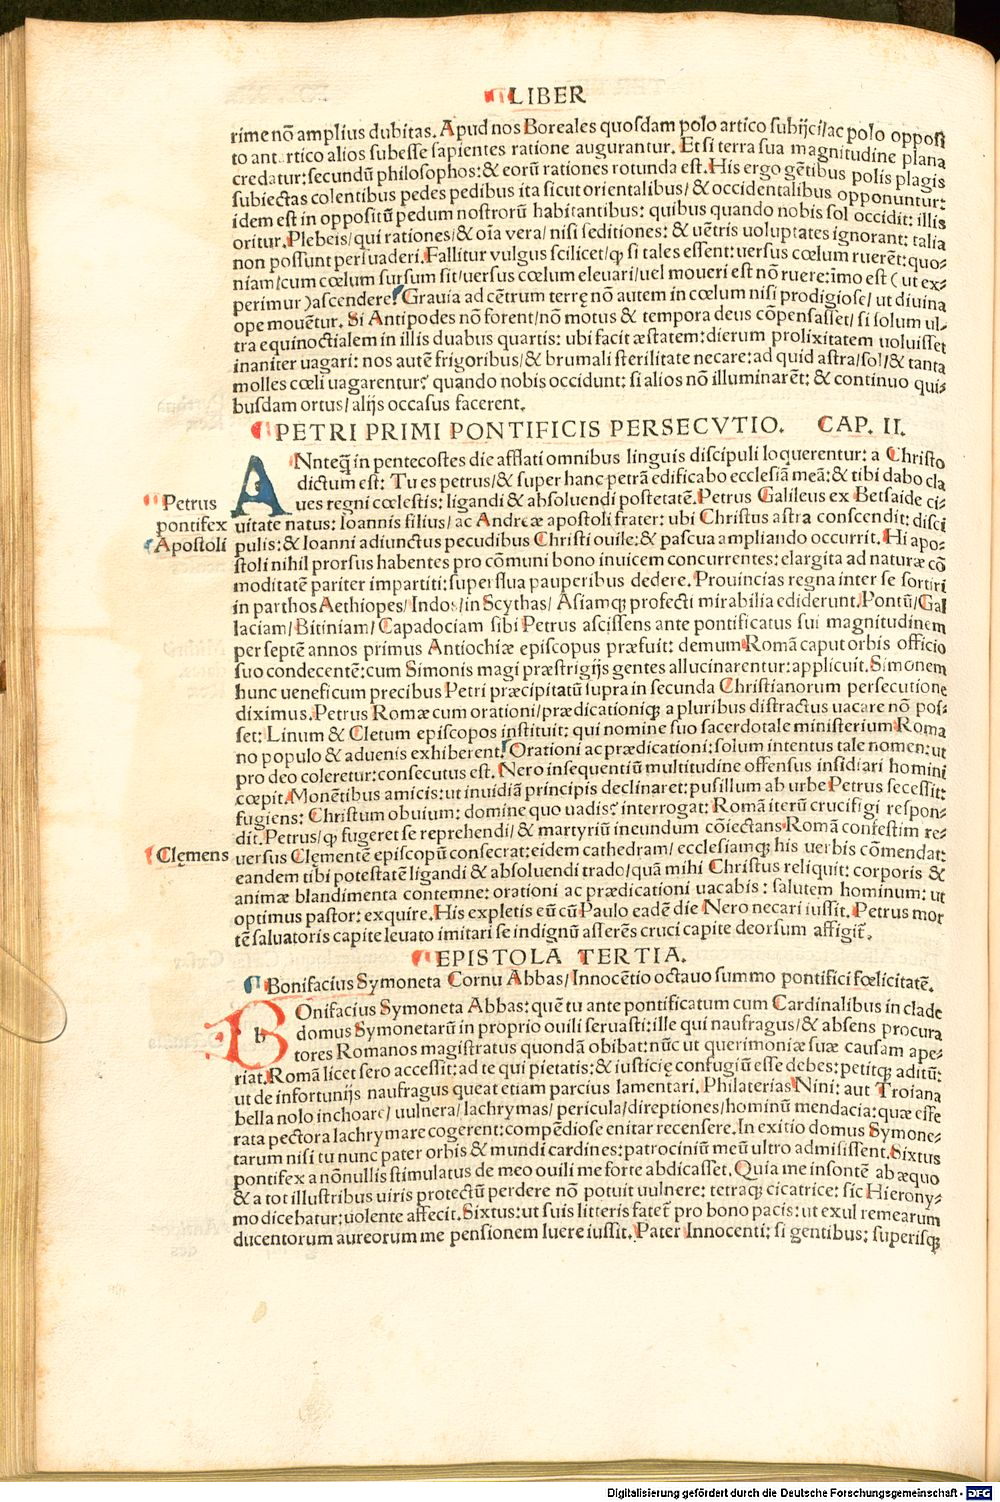 LIBER
rime nō amplius dubitas. Apud nos Boreales quosdam polo artico subijci/ac polo opposi
to antartico alios subesse sapientes ratione augurantur. Et si terra sua magnitudine plana
credatur: secundū philosophos: & eorū rationes rotunda est. His ergo gētibus polis plagis
subiectas colentibus pedes pedibus ita sicut orientalibus/ & occidentalibus opponuntur:
idem est in oppositū pedum nostrorū habitantibus: quibus quando nobis sol occidit: illis
oritur. Plebeis/ qui rationes/ & oīa vera/ nisi seditiones: & uētris uoluptates ignorant: talia
non possunt persuaderi. Fallitur vulgus scilicet/ q̧ si tales essent: uersus cœlum ruerēt: quo-
niam/cum cœlum sursum sit/uersus cœlum eleuari/uel moueri est nō ruere: īmo est ( ut ex-
perimur ) ascendere? Grauia ad cētrum terrę nō autem in cœlum nisi prodigiose/ ut diuina
ope mouētur. Si Antipodes nō forent/nō motus & tempora deus cōpensasset/ si solum ul-
tra equinoctialem in illis duabus quartis: ubi facit æstatem: dierum prolixitatem uoluisset
inaniter uagari: nos autē frigoribus/ & brumali sterilitate necare: ad quid astra/sol/ & tanta
molles cœli uagarentur? quando nobis occidunt: si alios nō illuminarēt: & continuo qui-
busdam ortus/ alijs occasus facerent.
PETRI PRIMI PONTIFICIS PERSECVTIO. CAP. II.
ANnteq̄ in pentecostes die afflati omnibus linguis discipuli loquerentur: a Christo
dictum est: Tu es petrus/ & super hanc petrā edificabo ecclesiā meā: & tibi dabo cla
ues regni cœlestis: ligandi & absoluendi postetatē. Petrus Galileus ex Betsaide ci-
Petrus
pontifex
Apostoli
uitate natus: Ioannis filius/ ac Andreæ apostoli frater: ubi Christus astra conscendit: disci
pulis: & Ioanni adiunctus pecudibus Christi ouile: & pascua ampliando occurrit. Hi apo-
stoli nihil prorsus habentes pro cōmuni bono inuicem concurrentes: elargita ad naturæ cō
moditatē pariter impartiti: superflua pauperibus dedere. Prouincias regna inter se sortiri
in parthos Aethiopes/ Indos/in Scythas/ Asiamq; profecti mirabilia ediderunt. Pontū/ Gal
laciam/ Bitiniam/ Capadociam sibi Petrus ascissens ante pontificatus sui magnitudinem
per septē annos primus Antiochiæ episcopus præfuit: demum Romā caput orbis officio
suo condecentē: cum Simonis magi præstrigijs gentes allucinarentur: applicuit. Simonem
hunc ueneficum precibus Petri præcipitatū supra in secunda Christianorum persecutione
diximus. Petrus Romæ cum orationi/prædicationiq; a pluribus distractus uacare nō pos-
set: Linum & Cletum episcopos instituit: qui nomine suo sacerdotale ministerium Roma
no populo & aduenis exhiberent. Orationi ac prædicationi: solum intentus tale nomen: ut
pro deo coleretur: consecutus est. Nero insequentiū multitudine offensus insidiari homini
cœpit. Monētibus amicis: ut inuidiā principis declinaret: pusillum ab urbe Petrus secessit:
fugiens: Christum obuium: domine quo uadis? interrogat: Romā iterū crucifigi respon-
dit. Petrus/ q̧ fugeret se reprehendi/ & martyriū ineundum cōiectans Romā confestim re-
Clemens
uersus Clementē episcopū consecrat: eidem cathedram/ ecclesiamq; his uerbis cōmendat:
eandem tibi potestatē ligandi & absoluendi trado/quā mihi Christus reliquit: corporis &
animæ blandimenta contemne: orationi ac prædicationi uacabis: salutem hominum: ut
optimus pastor: exquire. His expletis eū cū Paulo eadē die Nero necari iussit. Petrus mor
tē saluatoris capite leuato imitari se indignū asserēs cruci capite deorsum affigit̄.
EPISTOLA TERTIA.
Bonifacius Symoneta Cornu Abbas/ Innocētio octauo summo pontifici fœlicitatē.
BOnifacius Symoneta Abbas: quē tu ante pontificatum cum Cardinalibus in clade
domus Symonetarū in proprio ouili seruasti: ille qui naufragus/ & absens procura
tores Romanos magistratus quondā obibat: nūc ut querimoniæ suæ causam ape-
riat. Romā licet sero accessit: ad te qui pietatis: & iusticię confugiū esse debes: petitq; aditū:
ut de infortunijs naufragus queat etiam parcius lamentari. Philaterias Nini: aut Troiana
bella nolo inchoare/ uulnera/ lachrymas/ pericula/ direptiones/ hominū mendacia: quæ effe
rata pectora lachrymare cogerent: compēdiose enitar recensere. In exitio domus Symone-
tarum nisi tu nunc pater orbis & mundi cardines: patrociniū meū ultro admisissent. Sixtus
pontifex a nōnullis stimulatus de meo ouili me forte abdicasset. Quia me insontē ab æquo
& a tot illustribus uiris protectū perdere nō potuit uulnere: tetraq; cicatrice: sic Hierony-
mo dicebatur: uolente affecit. Sixtus: ut suis litteris fatet̄ pro bono pacis: ut exul remearum
ducentorum aureorum me pensionem luere iussit. Pater Innocenti: si gentibus: superisq;
Digitalisierung gefördert durch die Deutsche Forschungsgemeinschaft - DFG